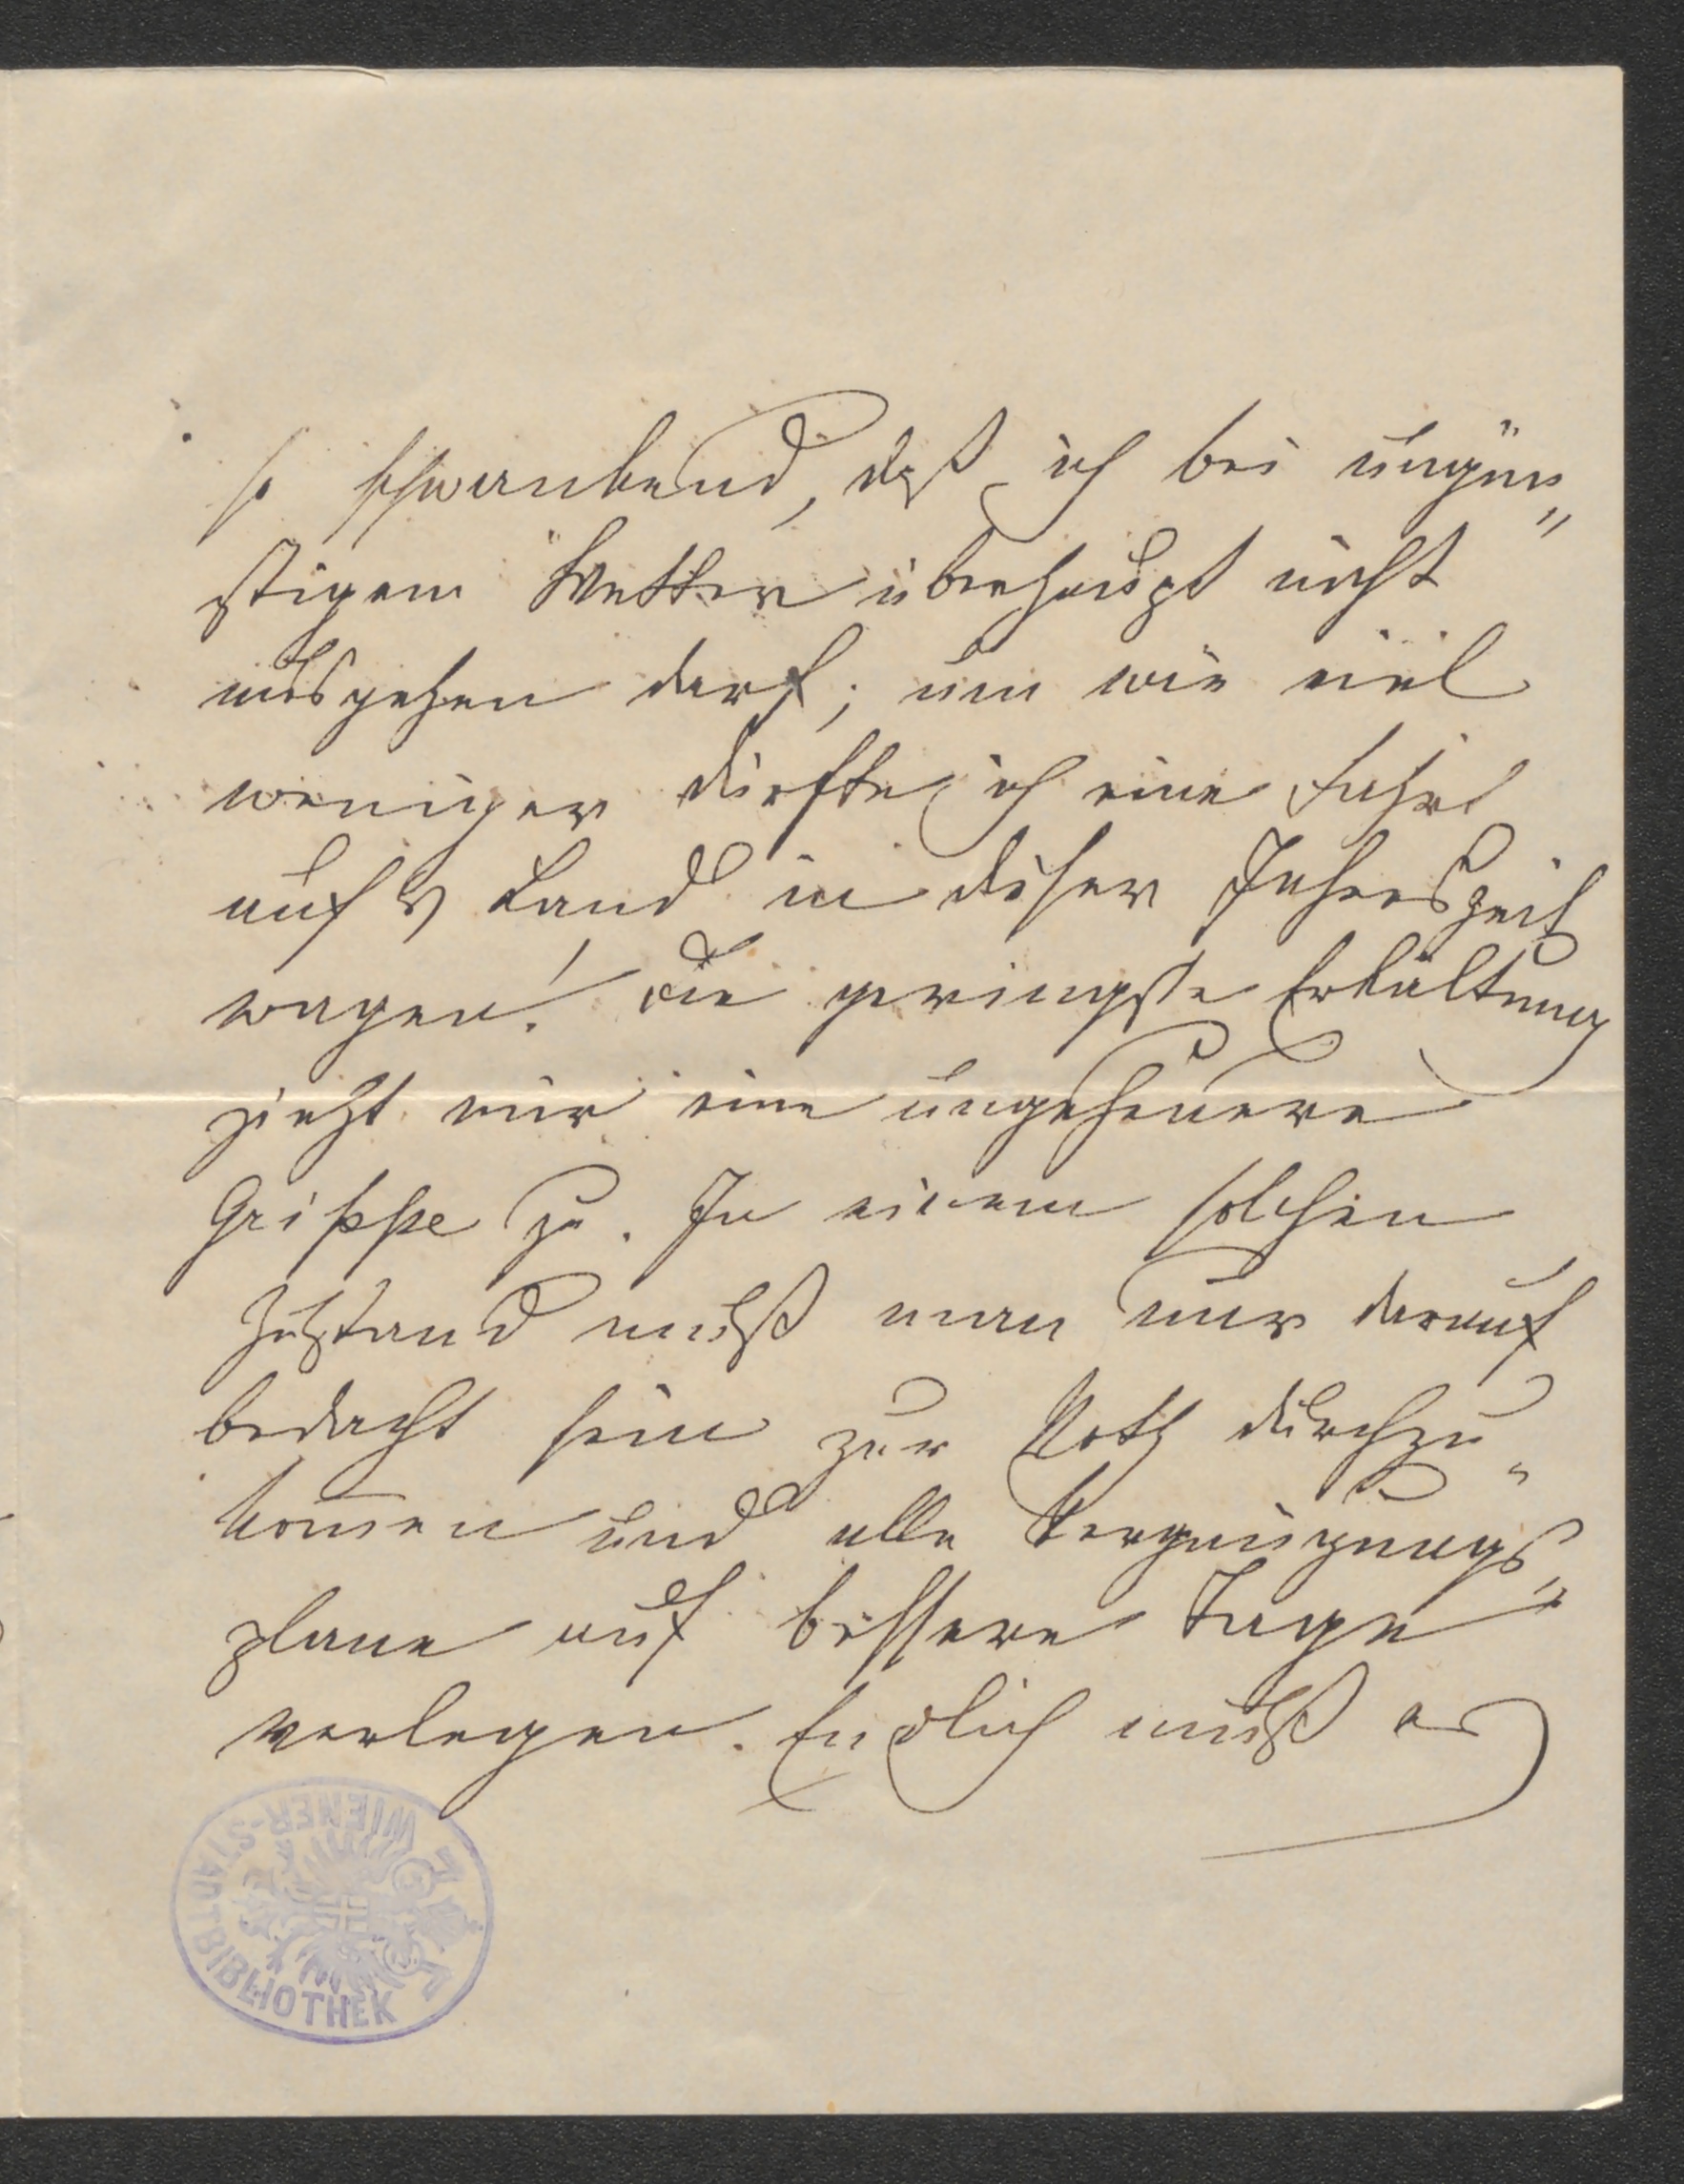 so schwankend, daß ich bei ungün„
stigem Wetter überhaupt nicht
ausgehen darf; um wie viel
weniger dürfte ich eine Fahrt
auf's Land in dieser Jahreszeit
wagen! Die geringste Erkältung
zieht mir eine ungeheuere
Grippe zu. In einem solchen
Zustand muß man nur darauf
bedacht sein zur Noth durchzu„
kom̄en und alle Vergnügungs„
plane auf bessere Tage
verlegen. Endlich muß es
WIENER-STADTBIBLIOTHEK